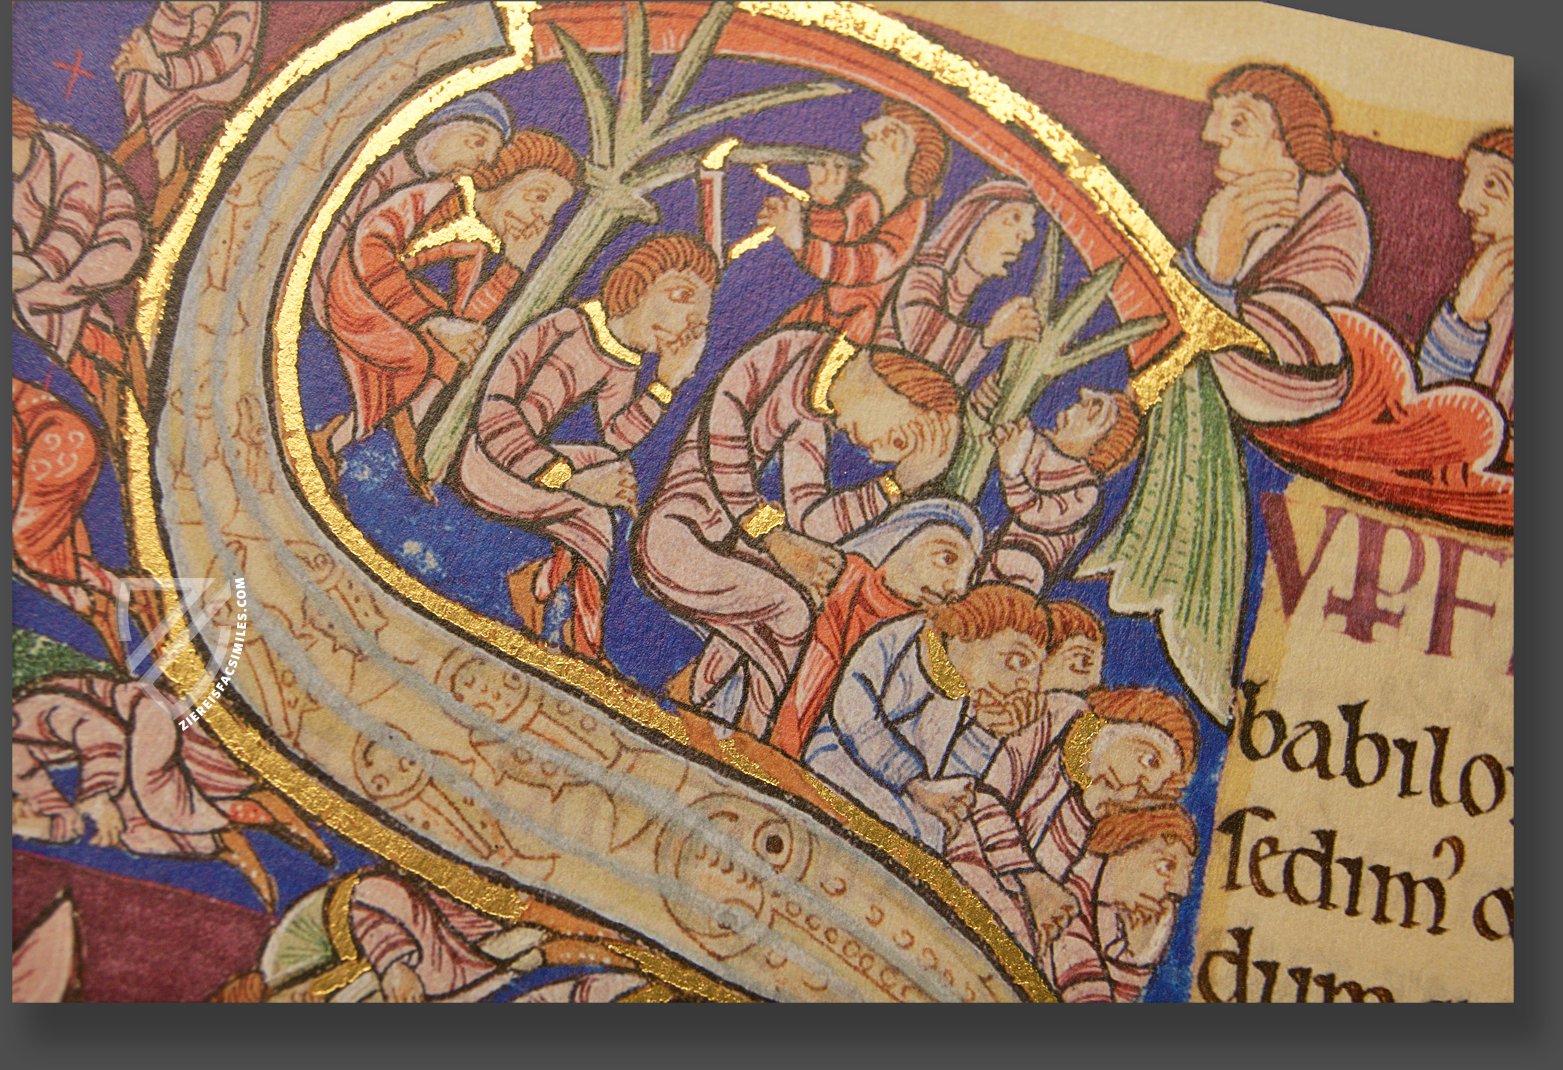 VPF
babilo
sedim̄ a
dum
ZIEREISFACSIMILES.COM